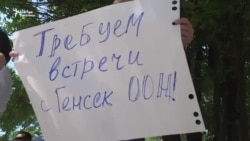 Требуем
встречи
с Генсек ООН!